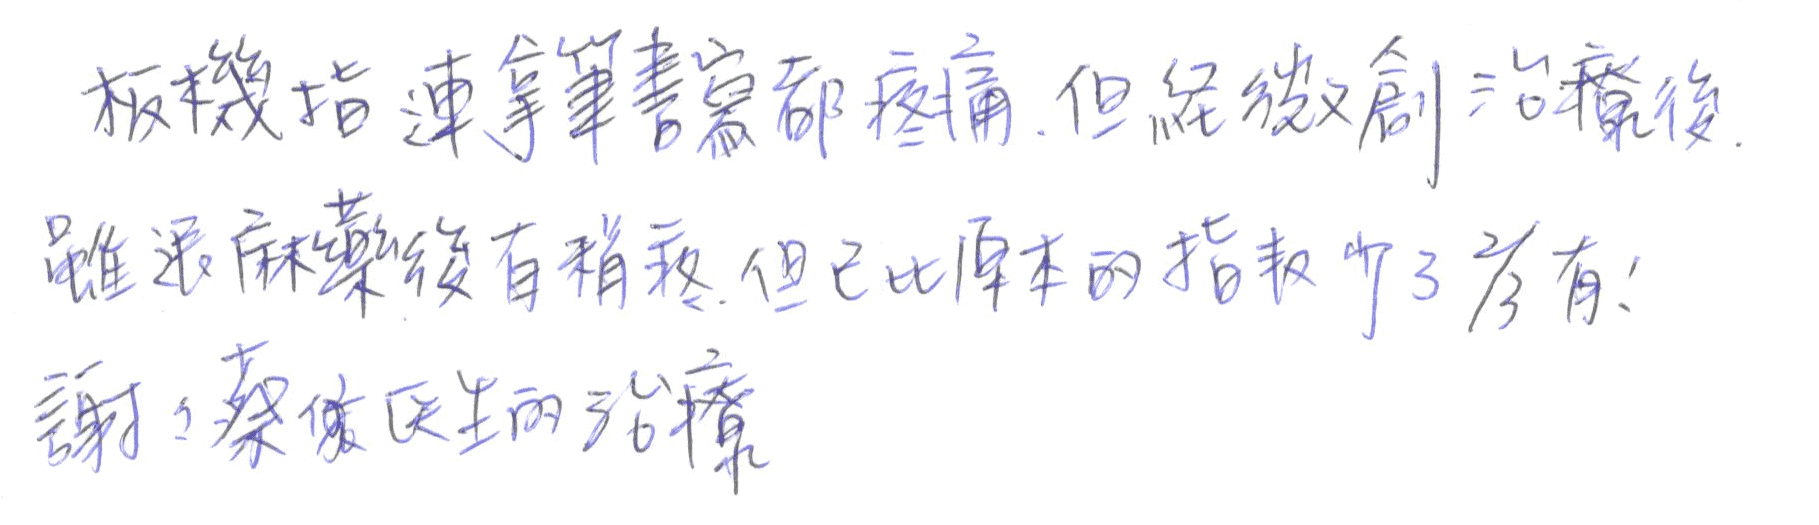 板機指連拿筆書寫都疼痛.但経微創治療後.
雖退麻藥後有稍疼.但已比原本的指数少了2/3有!
謝々蔡俊医生的治療